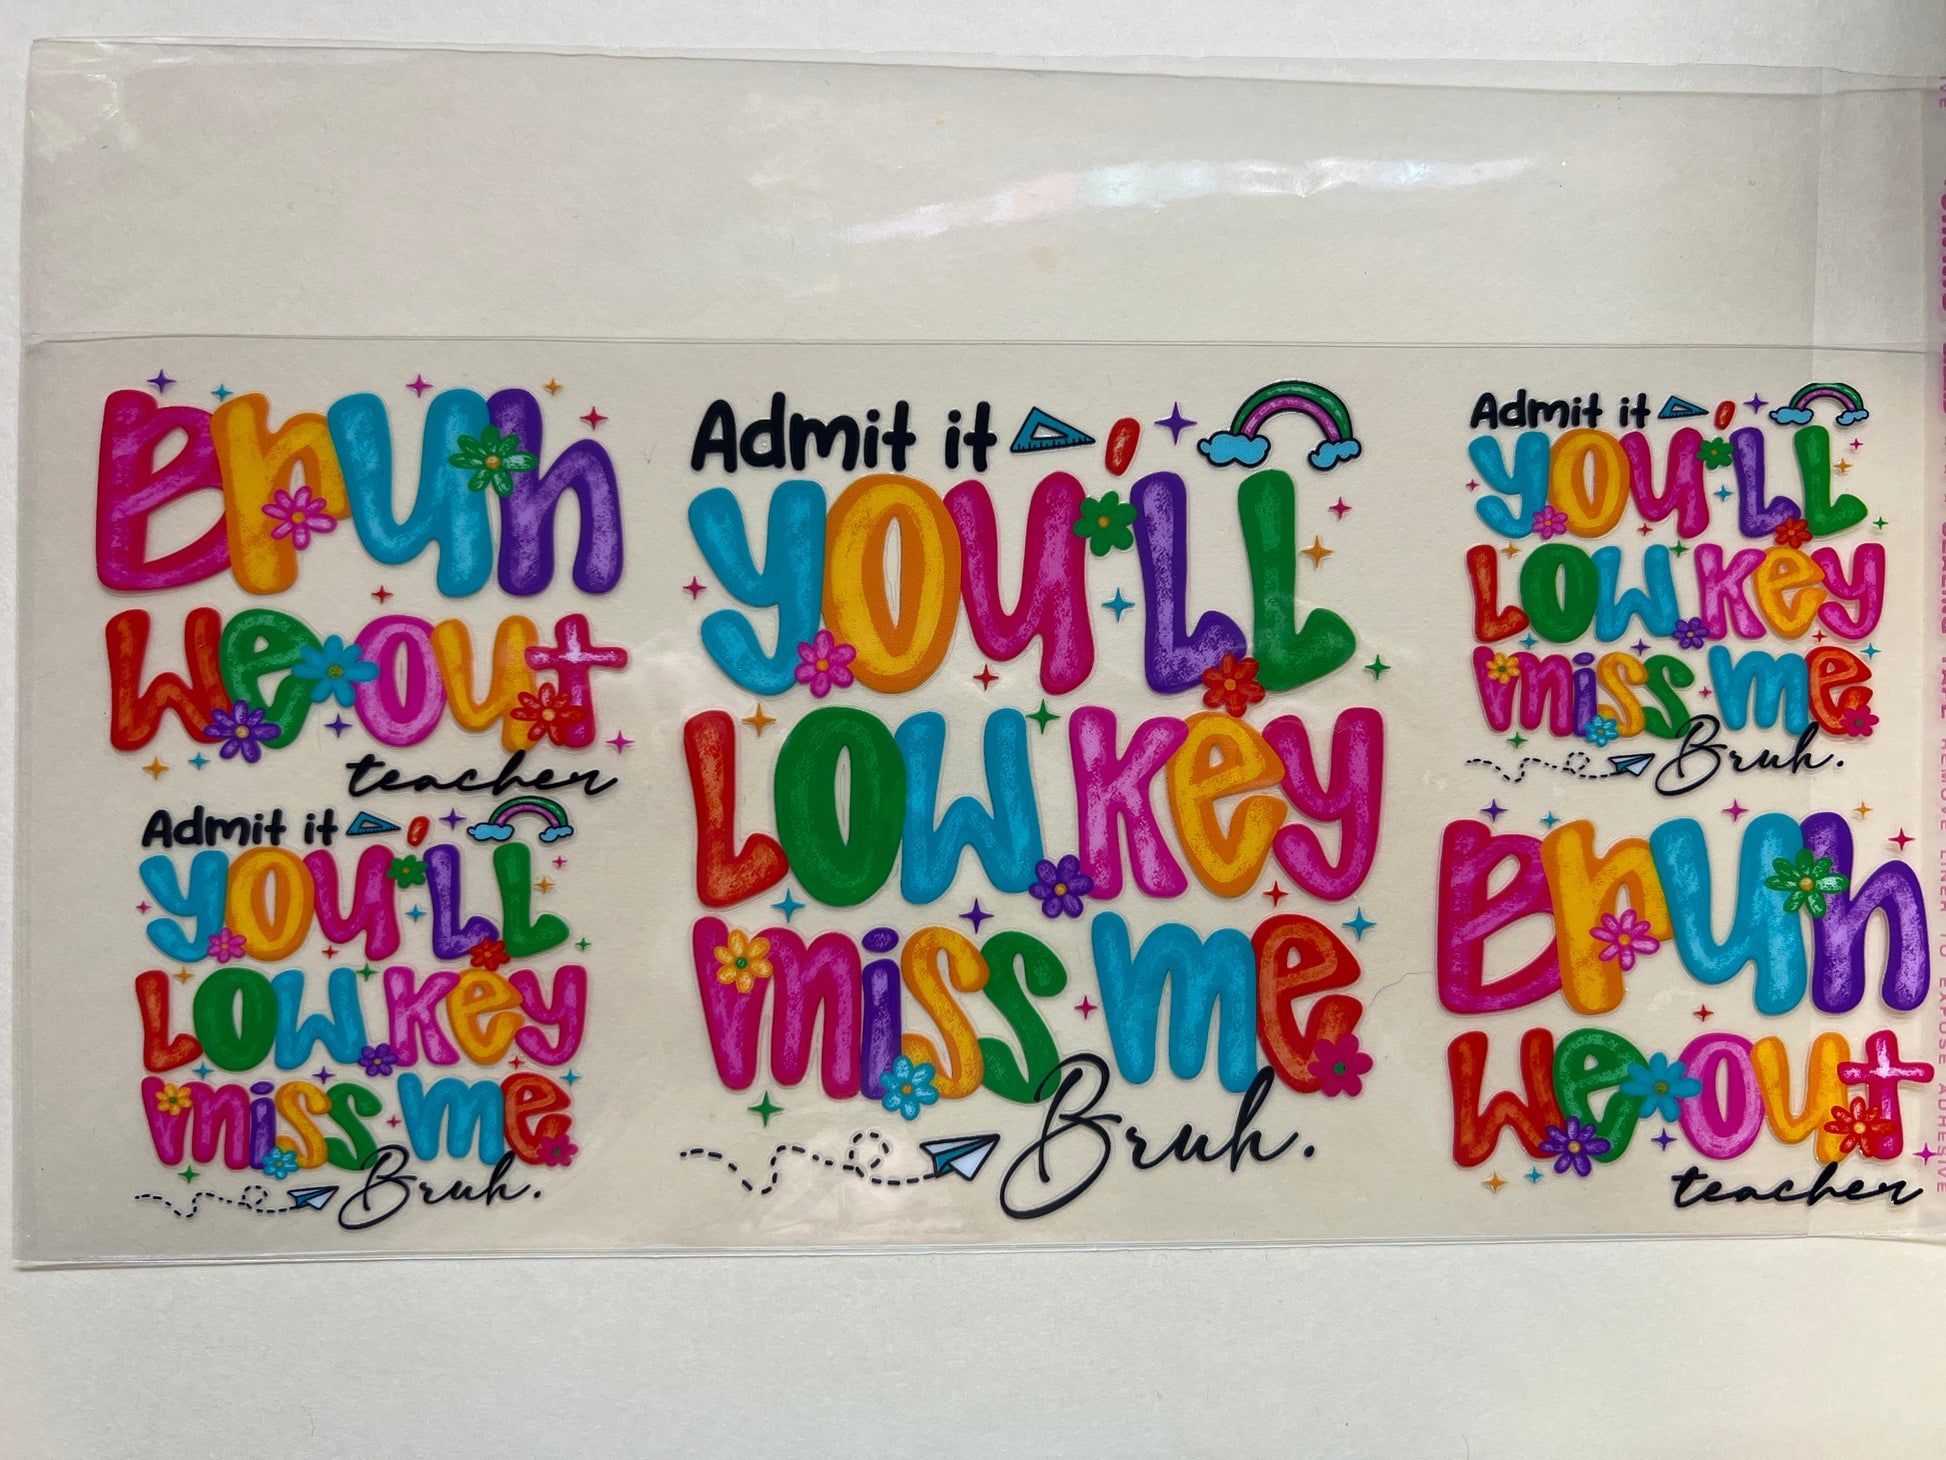 Bruh
we out
teacher
Admit it
you'll
Low key
miss me
Bruh.
Admit it
you'll
Low key
miss me
Bruh.
Admit it
you'll
Low key
miss me
Bruh.
Bruh
we out
teacher
SEALING TAPE REMOVE LINER TO EXPOSE ADHESIVE